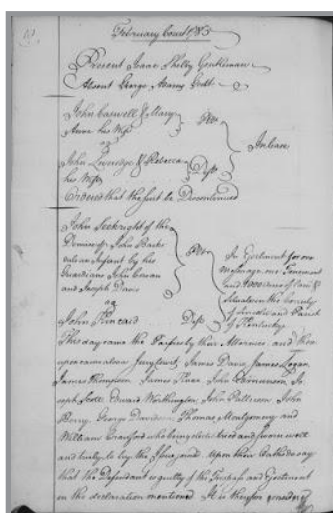 February Court 1785
Present Isaac Shelby Gentleman
Absent George Adams Gent
John Caswell & Mary
Anne his Wife Plts
vs In Case
John Leveridge & Rebecca
his Wife Defts
Ordered that the Suit be Discontinued
John Seekright of the
Demise of John
an Infant by his Plt In Ejectment for one
Guardians John Messuage one Tenement
and Joseph Davis and 1000 acres of land
vs situate in the County
of Lincoln and Parish
John Kincaid Deft of Kentucky
This day came the Parties by their Attornies and there
upon came also a Jury to wit, James Davis, James Logan,
James Thompson, James John Jo
seph Scott Edward Worthington, John Patterson John
Berry, George Davidson Thomas Montgomery and
William Crawford who being elected tried and sworn well
and truly to try the Issue joined upon their Oaths do say
that the Defendant is guilty of the Trespass and Ejectment
in the declaration mentioned It is therefore considered